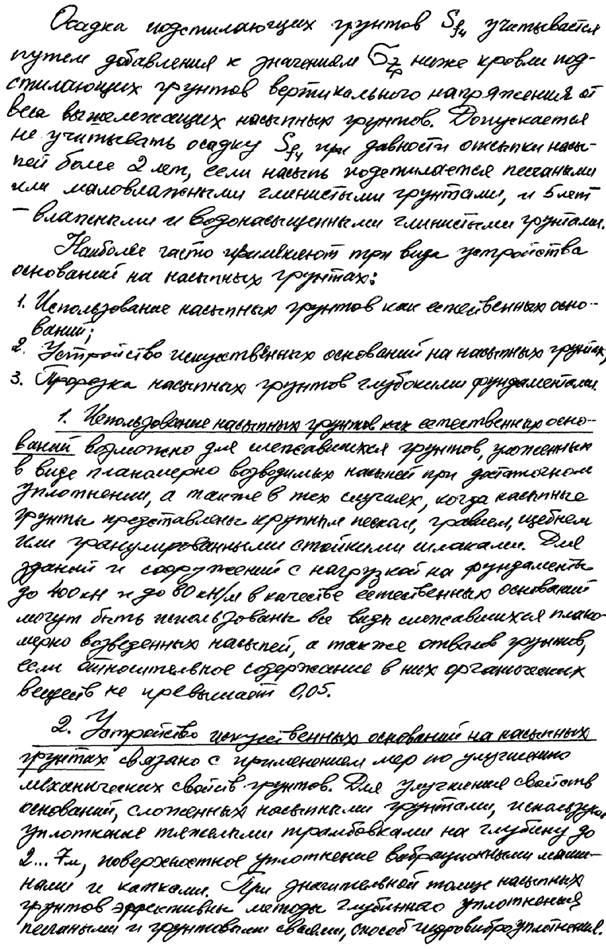 Осадка подстилающих грунтов Sf4 учитывается
путем добавления к значениям σzp ниже кровли под-
стилающих грунтов вертикального напряжения от
веса вышележащих насыпных грунтов. Допускается
не учитывать осадку Sf4 при давности отсыпки насы-
пей более 2 лет, если насыпь подстилается песчаными
или маловлажными глинистыми грунтами, и 5 лет
– влажными и водонасыщенными глинистыми грунтами.
Наиболее часто применяют три вида устройства
оснований на насыпных грунтах:
1. Использование насыпных грунтов как естественных осно-
ваний;
2. Устройство искусственных оснований на насыпных грунтах;
3. Прорезка насыпных грунтов глубокими фундаментами.
1. Использование насыпных грунтов как естественных осно-
ваний возможно для слежавшихся грунтов, уложенных
в виде планомерно возводимых насыпей при достаточном
уплотнении, а также в тех случаях, когда насыпные
грунты представлены крупным песком, гравием, щебнем
или гранулированными стойкими шлаками. Для
зданий и сооружений с нагрузкой на фундаменты
до 400 кН и до 80 кН/м в качестве естественных оснований
могут быть использованы все виды слежавшихся плано-
мерно возведенных насыпей, а также отвалов грунтов,
если относительное содержание в них органических
веществ не превышает 0,05.
2. Устройство искусственных оснований на насыпных
грунтах связано с применением мер по улучшению
механических свойств грунтов. Для улучшения свойств
оснований, сложенных насыпными грунтами, используют
уплотнение тяжелыми трамбовками на глубину до
2...7м, поверхностное уплотнение вибрационными маши-
нами и катками. При значительной толще насыпных
грунтов эффективны методы глубинного уплотнения
песчаными и грунтовыми сваями, способ гидровиброуплотнения.